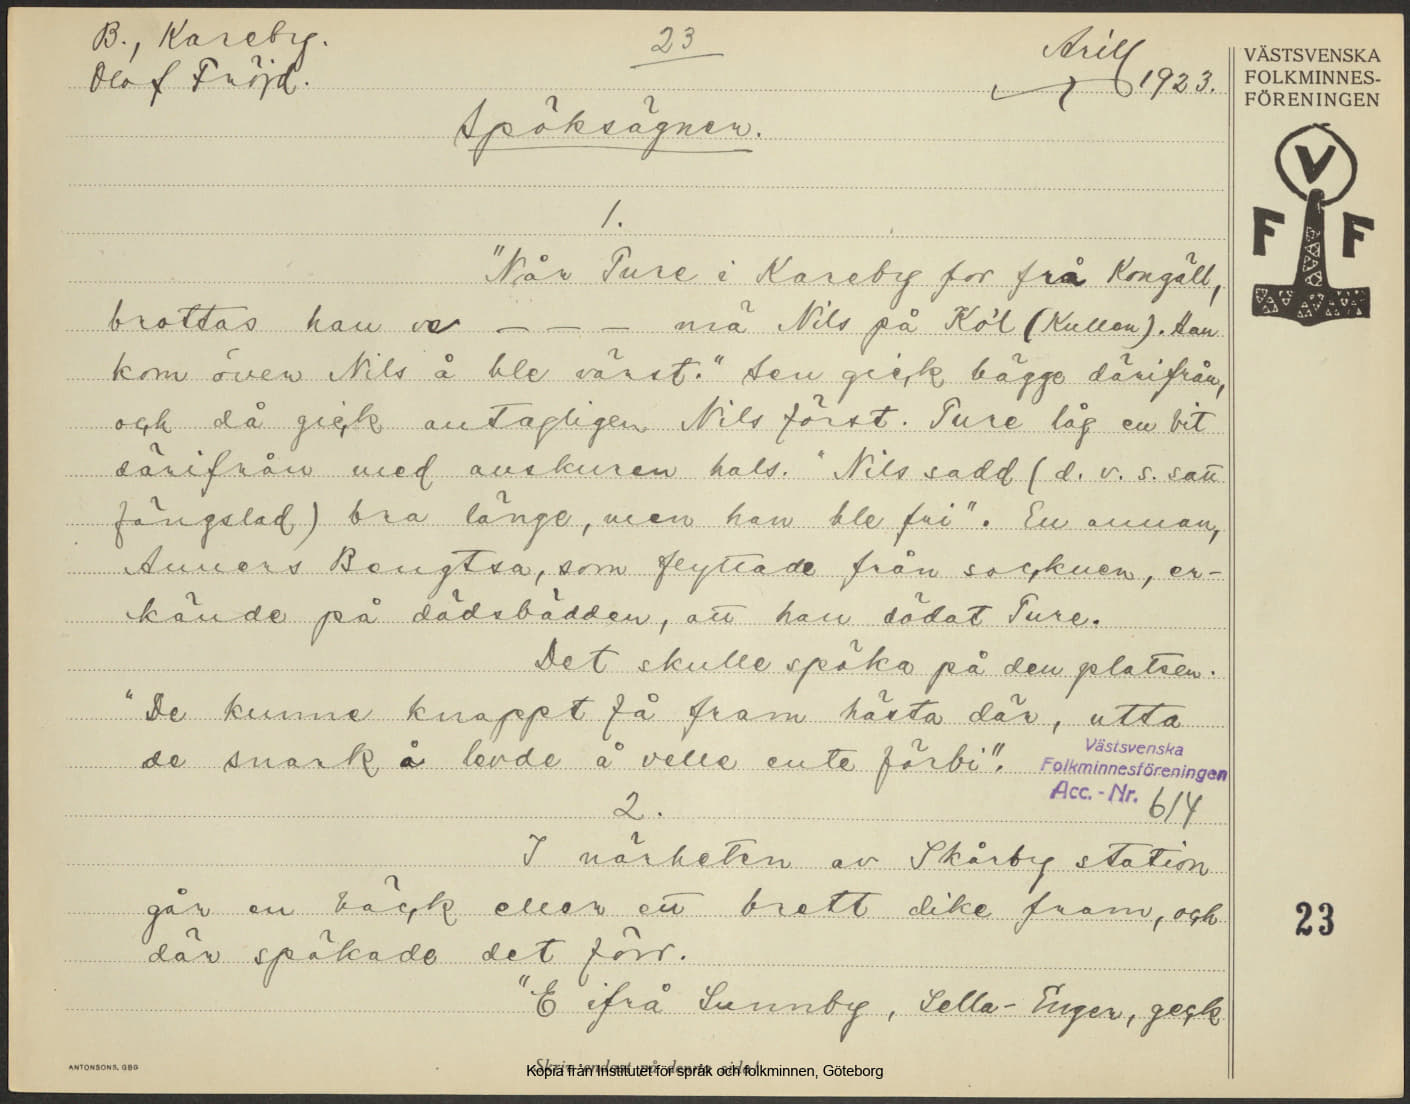 B., Kareby.
Olof Fröjd.
23
Arill
1923.
VÄSTSVENSKA
FOLKMINNES-
FÖRENINGEN
V
F F
Spöksägner.
1.
"Når Ture i Kareby for frå Kongäll,
brottas han ve — — — mä Nils på Köl (Kullen). Han
kom över Nils å ble värst." Sen gick bägge därifrån,
och då gick antagligen Nils först. Ture låg en bit
därifrån med avskuren hals. "Nils sadd (d. v. s. satt
fängslad) bra länge, men han ble fri". En annan,
Anners Bengtsa, som flyttade från socknen, er-
kände på dödsbädden, att han dödat Ture.
Det skulle spöka på den platsen.
"De kunne knappt få fram hästa där, utta
de snark å levde å velle ente förbi".
Västsvenska
Folkminnesföreningen
Acc. - Nr. 614
2.
I närheten av Skårby station
går en bäck eller ett brett dike fram, och
där spökade det förr.
"E ifrå Sunnby, Sella-Enger, geck
23
ANTONSONS, GBG
Skriv endast på denna sida!
Kopia från Institutet för språk och folkminnen, Göteborg